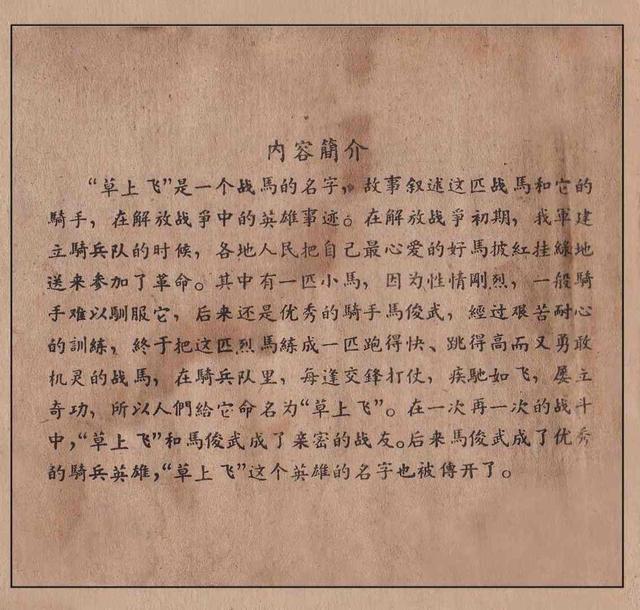 内容簡介
“草上飞”是一个战馬的名字，故事叙述这匹战馬和它的
騎手，在解放战爭中的英雄事迹。在解放战爭初期，我軍建
立騎兵队的时候，各地人民把自己最心爱的好馬披紅挂綠地
送来参加了革命。其中有一匹小馬，因为性情剛烈，一般騎
手难以馴服它，后来还是优秀的騎手馬俊武，經过艰苦耐心
的訓練，終于把这匹烈馬練成一匹跑得快、跳得高而又勇敢
机灵的战馬，在騎兵队里，每逢交鋒打仗，疾馳如飞，屡立
奇功，所以人們給它命名为“草上飞”。在一次再一次的战斗
中，“草上飞”和馬俊武成了亲密的战友。后来馬俊武成了优秀
的騎兵英雄，“草上飞”这个英雄的名字也被傳开了。